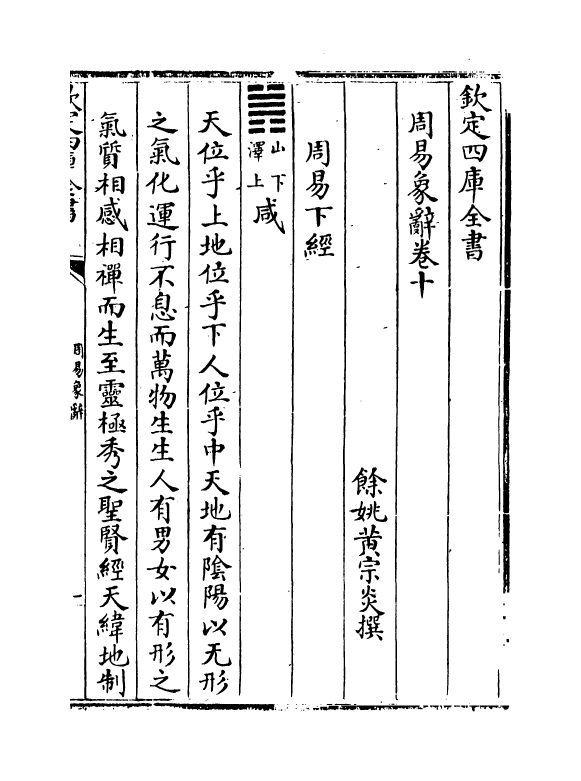 欽定四庫全書
周易象辭卷十
餘姚黃宗炎撰
周易下經
䷞
山下
澤上
咸
天位乎上地位乎下人位乎中天地有陰陽以无形
之氣化運行不息而萬物生生人有男女以有形之
氣質相感相禪而生至靈極秀之聖賢經天緯地制
欽定四庫全書
周易象辭
一